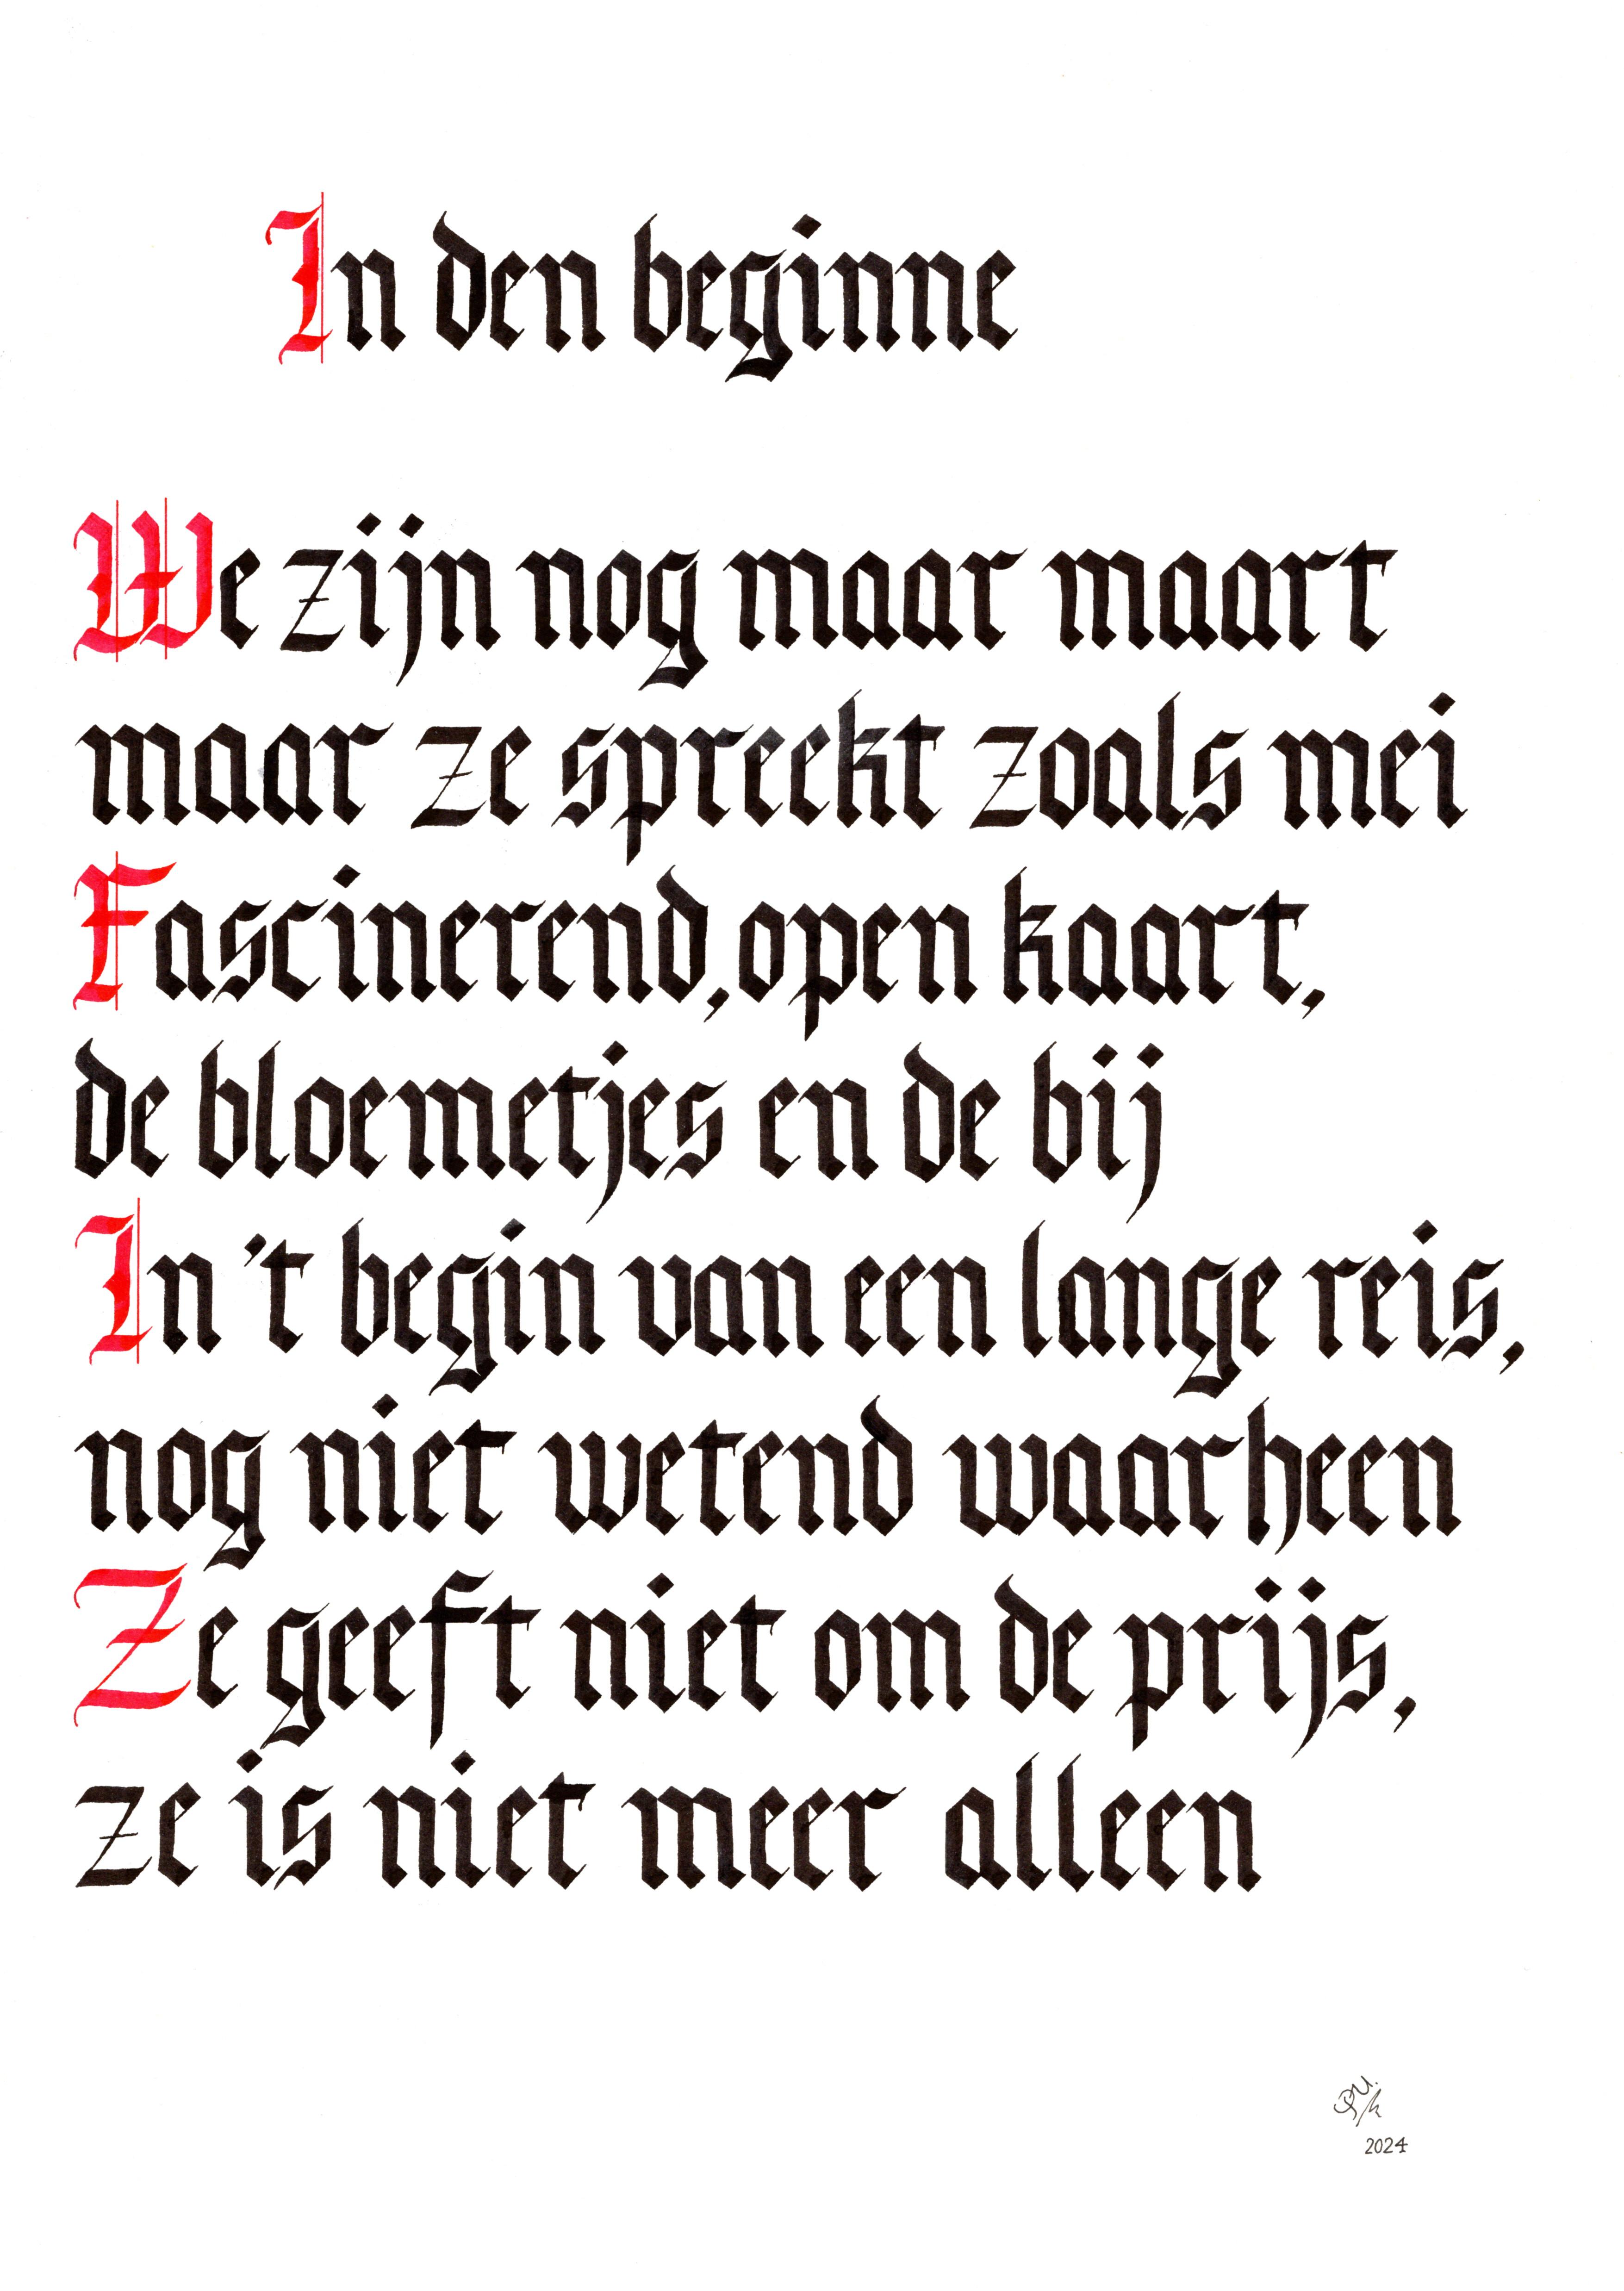 In den beginne
We zijn nog maar maart
maar ze spreekt zoals mei
Fascinerend, open kaart,
de bloemetjes en de bij
In 't begin van een lange reis,
nog niet wetend waarheen
Ze geeft niet om de prijs,
ze is niet meer alleen
2024